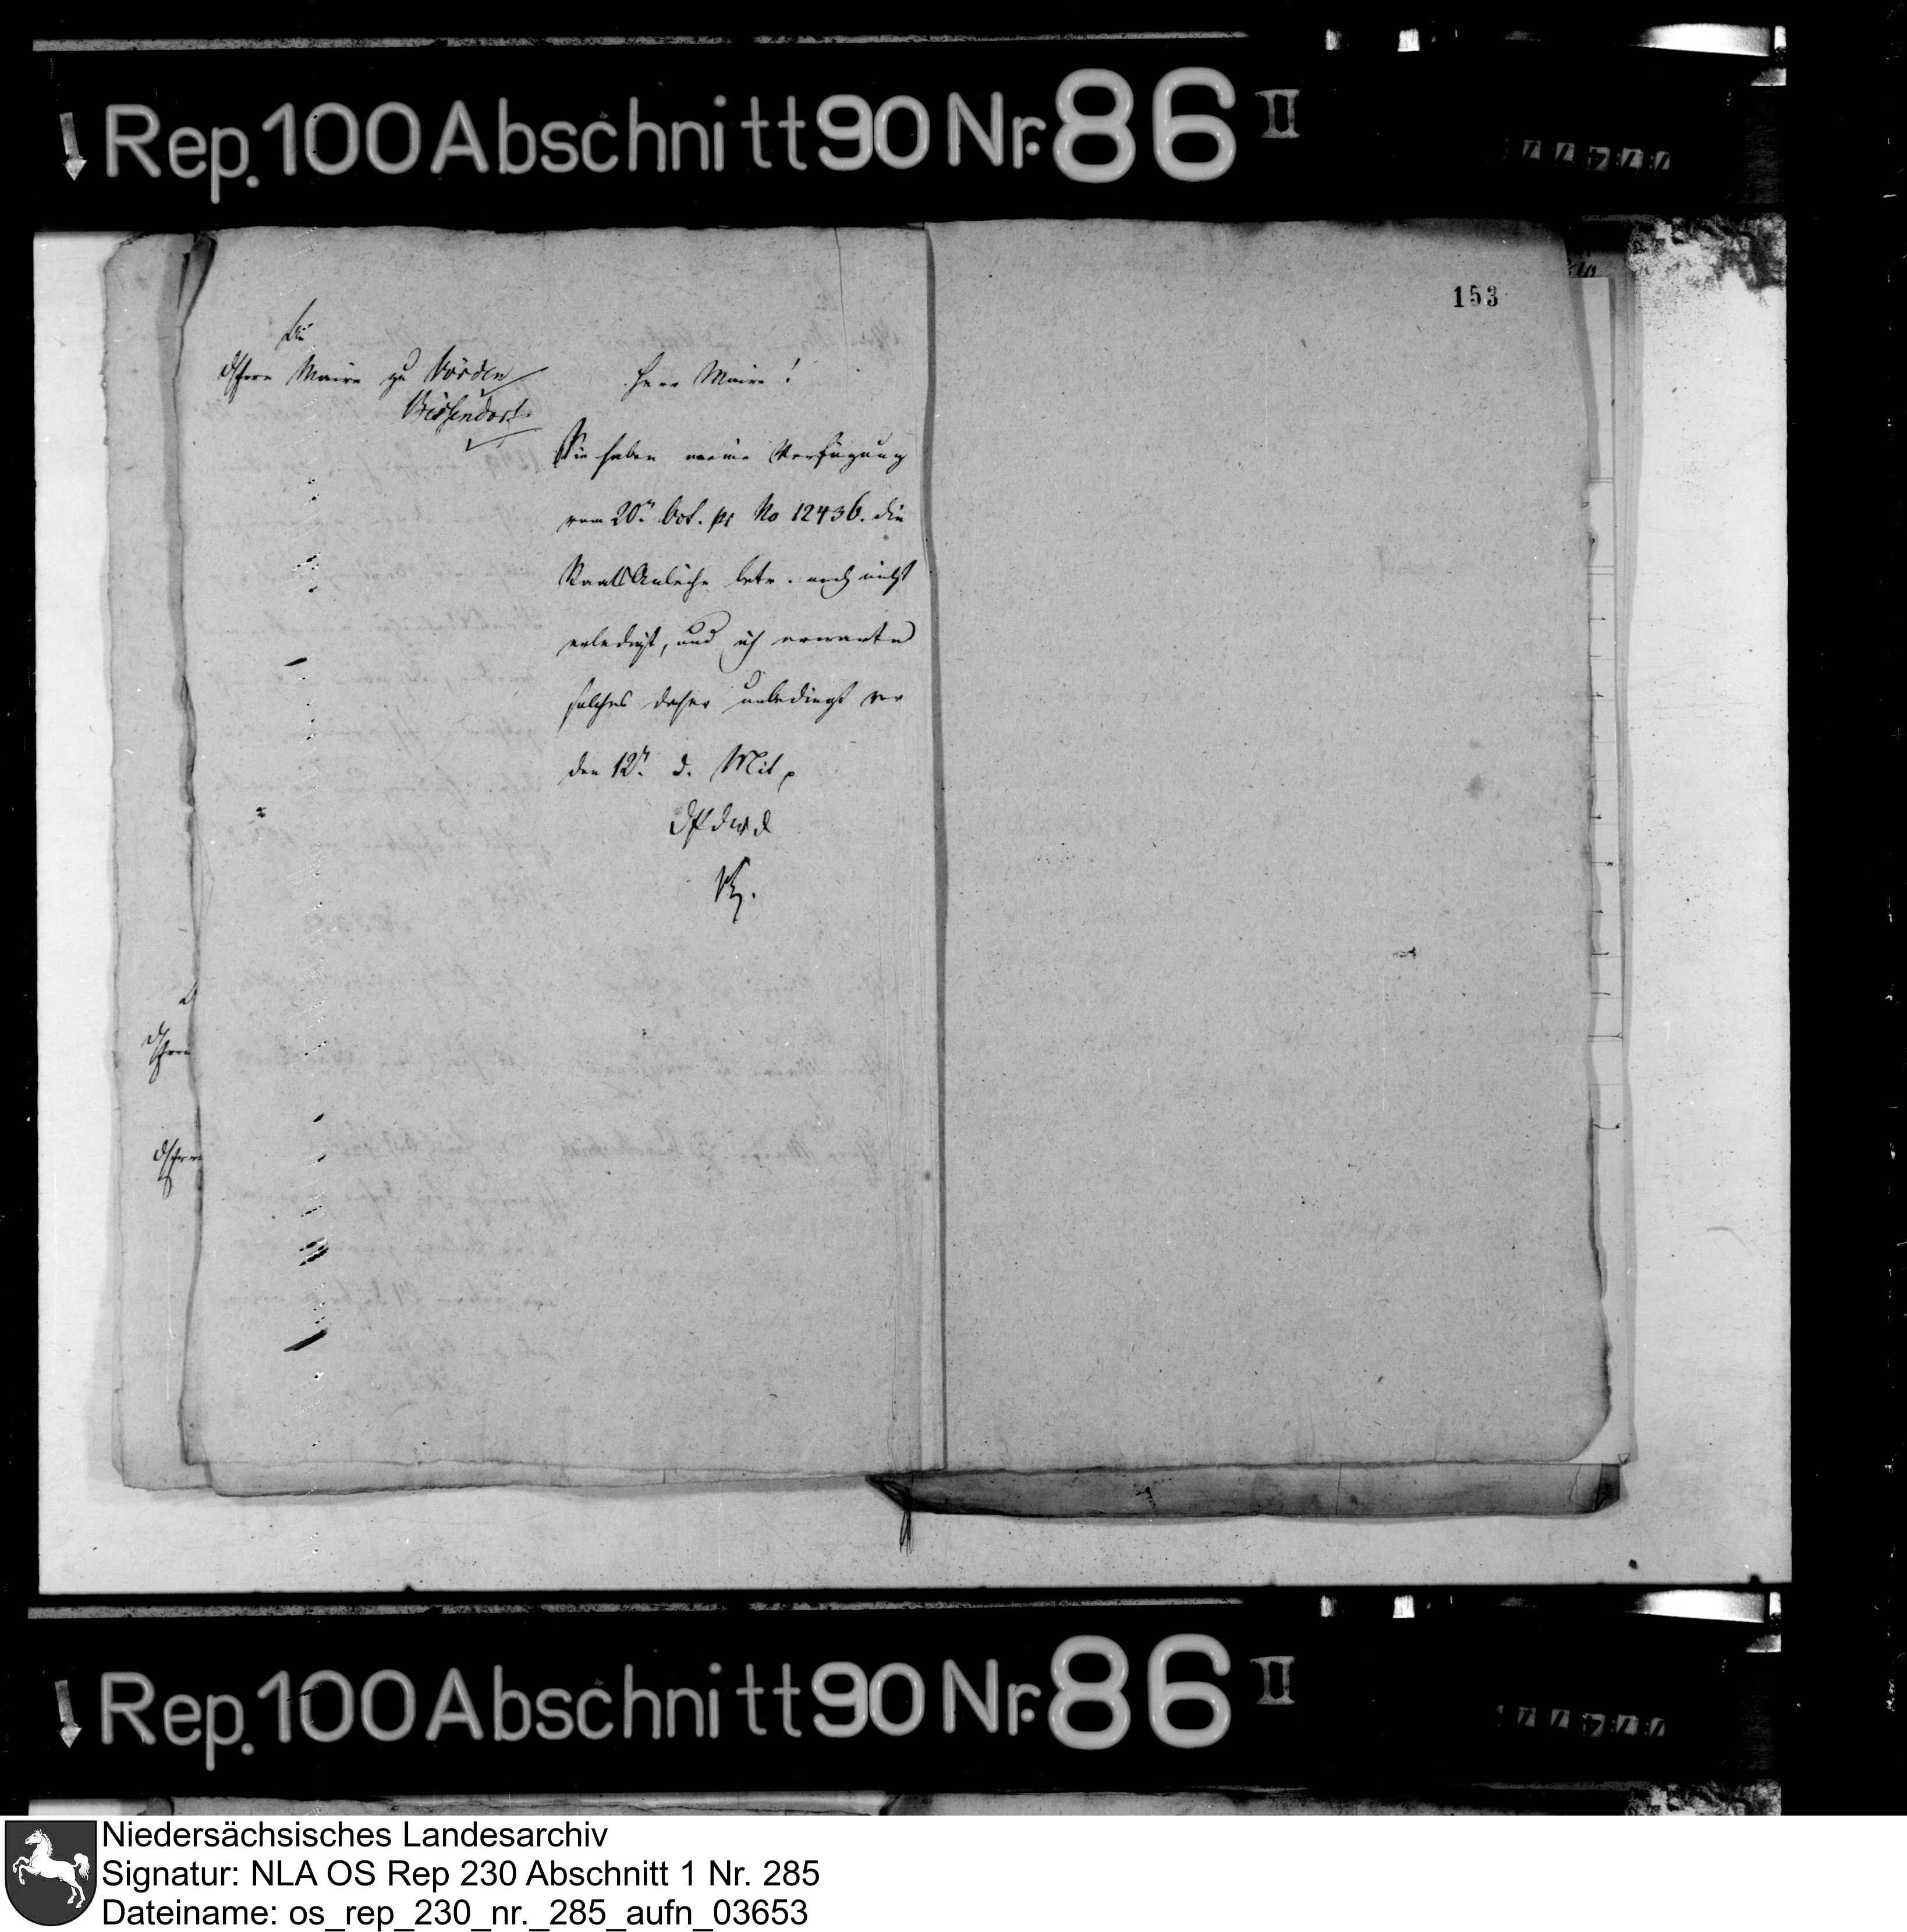 Rep. 100 Abschnitt 90 Nr. 86 II
153
An
d Herrn Maire zu Vörden
Wissendorf
Herr Maire!
Sie haben meine Verfügung
vom 20n Oct. pr No 12436. die
Staats Anleihe betr. noch nicht
erledigt, und ich erwarte
solches daher unbedingt vor
den 12n d. Mts
Herrn
Herrn
Rep. 100 Abschnitt 90 Nr. 86 II
Niedersächsisches Landesarchiv
Signatur: NLA OS Rep 230 Abschnitt 1 Nr. 285
Dateiname: os_rep_230_nr._285_aufn_03653